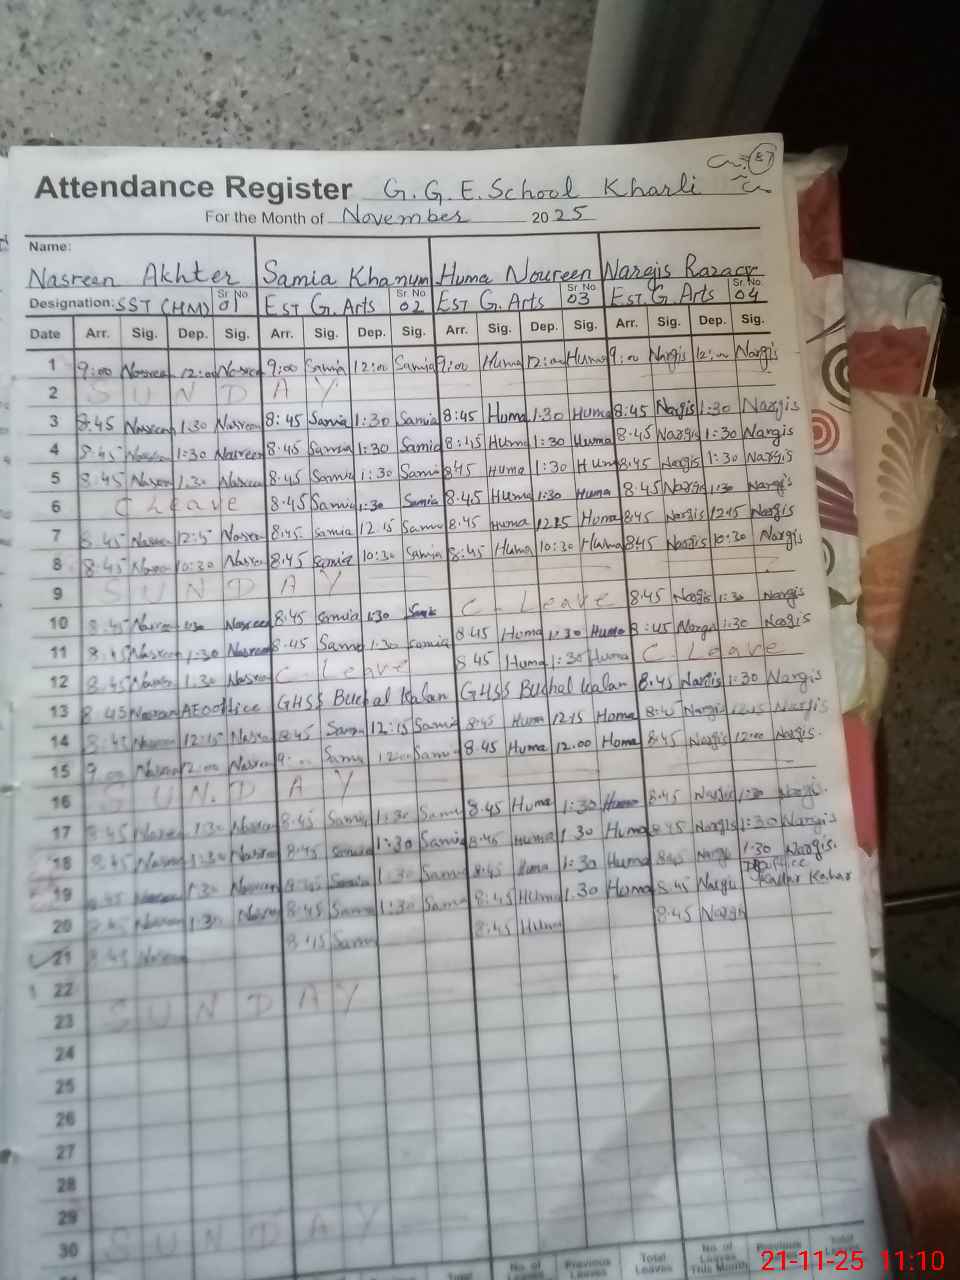 Attendance Register G.G.E.School Kharli
57
For the Month of November 2025
Name:
Nasreen Akhter Samia Khanum Huma Noureen Nargis
Designation: SST (HM) Sr. No. 01 EST G. Arts Sr. No. 02 EST G. Arts Sr. No. 03 EST G. Arts Sr. No. 04
Date Arr. Sig. Dep. Sig. Arr. Sig. Dep. Sig. Arr. Sig. Dep. Sig. Arr. Sig. Dep. Sig.
1 9:00 Nasreen 12:00 Nasreen 9:00 Samia 12:00 Samia 9:00 Huma 12:00 Huma 9:00 Nargis 12:00 Nargis
2 S U N D A Y
3 8:45 Nasreen 1:30 Nasreen 8:45 Samia 1:30 Samia 8:45 Huma 1:30 Huma 8:45 Nargis 1:30 Nargis
4 8:45 Nasreen 1:30 Nasreen 8:45 Samia 1:30 Samia 8:45 Huma 1:30 Huma 8:45 Nargis 1:30 Nargis
5 8:45 Nasreen 1:30 Nasreen 8:45 Samia 1:30 Samia 8:45 Huma 1:30 Huma 8:45 Nargis 1:30 Nargis
6 C Leave 8:45 Samia 1:30 Samia 8:45 Huma 1:30 Huma 8:45 Nargis 1:30 Nargis
7 8:45 Nasreen 12:15 Nasreen 8:45 Samia 12:15 Samia 8:45 Huma 12:15 Huma 8:45 Nargis 12:15 Nargis
8 8:45 Nasreen 10:30 Nasreen 8:45 Samia 10:30 Samia 8:45 Huma 10:30 Huma 8:45 Nargis 10:30 Nargis
9 S U N D A Y
10 8:45 Nasreen 1:30 Nasreen 8:45 Samia 1:30 Samia C. Leave 8:45 Nargis 1:30 Nargis
11 8:45 Nasreen 1:30 Nasreen 8:45 Samia 1:30 Samia 8:45 Huma 1:30 Huma 8:45 Nargis 1:30 Nargis
12 8:45 Nasreen 1:30 Nasreen C. Leave 8:45 Huma 1:30 Huma C. Leave
13 8:45 Nasreen AEO office GHSS Buchal Kalan GHSS Buchal Kalan 8:45 Nargis 1:30 Nargis
14 8:45 Nasreen 12:15 Nasreen 8:45 Samia 12:15 Samia 8:45 Huma 12:15 Huma 8:45 Nargis Nargis
15 9:00 Nasreen 12:00 Nasreen 9:00 Samia 12:00 Samia 8:45 Huma 12:00 Huma 8:45 Nargis 12:00 Nargis.
16 S U N D A Y
17 8:45 Nasreen 1:30 Nasreen 8:45 Samia 1:30 Samia 8:45 Huma 1:30 Huma 8:45 Nargis 1:30 Nargis.
18 8:45 Nasreen 1:30 Nasreen 8:45 Samia 1:30 Samia 8:45 Huma 1:30 Huma 8:45 Nargis 1:30 Nargis
19 8:45 Nasreen 1:30 Nasreen 8:45 Samia 1:30 Samia 8:45 Huma 1:30 Huma 8:45 Nargis 1:30 Nargis.
20 8:45 Nasreen 1:30 Nasreen 8:45 Samia 1:30 Samia 8:45 Huma 1:30 Huma 8:45 Nargis office Kallar Kahar
21 8:45 Nasreen 8:45 Samia 8:45 Huma 8:45 Nargis
22
23 S U N D A Y
24
25
26
27
28
29
30 S U N D A Y
Total No. of Leaves Previous Leaves Total Leaves No. of Leaves This Month Previous Total Leaves
21-11-25 11:10